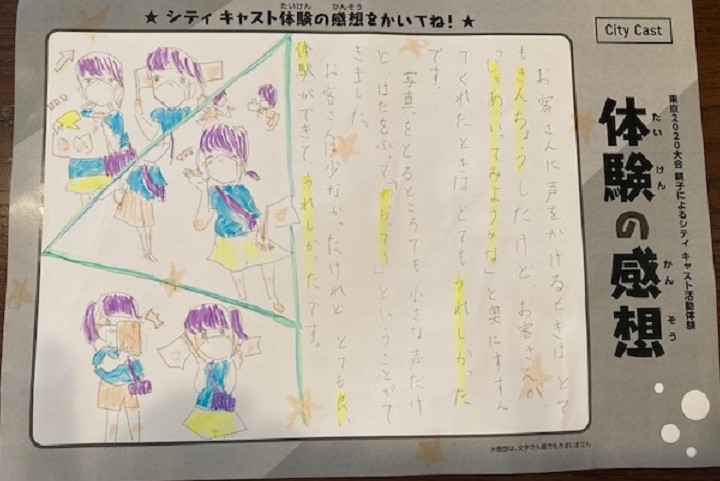 ★ シティ キャスト体験の感想をかいてね！ ★
たいけん かんそう
City Cast
東京2020大会 親子によるシティ キャスト活動体験
体験の感想
たい けん かん そう
お客さんに声をかけるときはとて
もきんちょうしたけど、お客さんが、
「じゃあ、いってみようかな」と奥にすすん
でくれたときはとてもうれしかった
です。
写真をとるところでも小さな声だけ
ど、はたをふって「わらって」ということがで
きました。
お客さんは少なかったけれどとても良い
体験ができてうれしかったです。
※感想は、文字でも絵でもかまいません